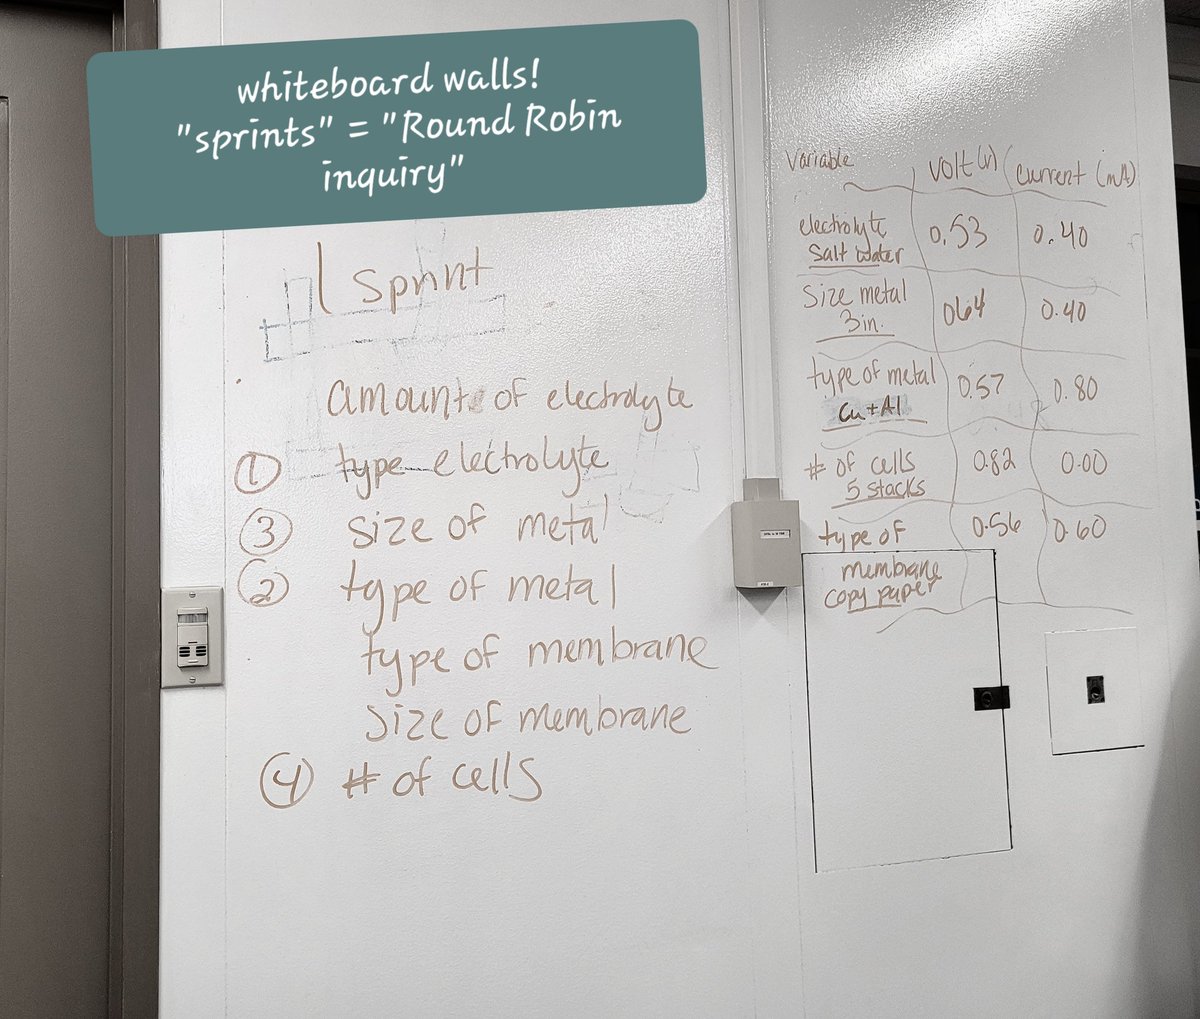 whiteboard walls!
"sprints" = "Round Robin
inquiry"
Sprint
amount of electrolyte
① type electrolyte
③ size of metal
② type of metal
type of membrane
size of membrane
④ # of cells
Variable Volt (v) Current (mA)
electrolyte
salt water 0.53 0.40
size metal
3in. 064 0.40
type of metal
Cu + Al 0.57 0.80
# of cells
5 stacks 0.82 0.00
type of 0.56 0.60
membrane
copy paper